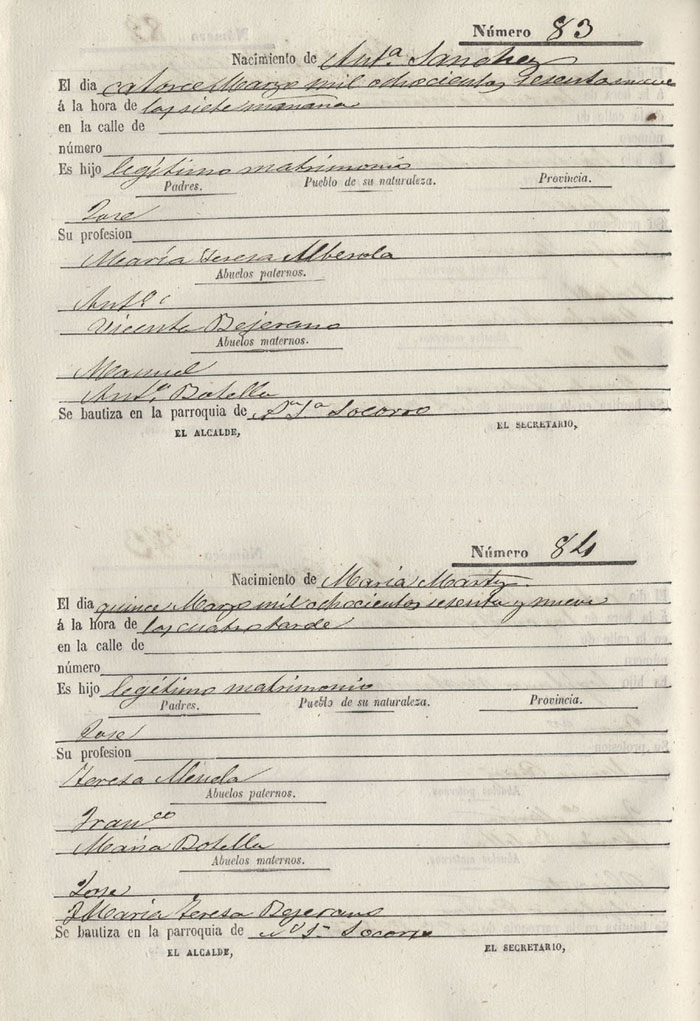 Número 83
Nacimiento de Antª Sanchez
El dia catorce Marzo mil ochocientos sesenta nueve
á la hora de las siete mañana
en la calle de
número
Es hijo legítimo matrimonio
Padres. Pueblo de su naturaleza. Provincia.
José
Su profesion
María Teresa Alberola
Abuelos paternos.
Antº
Vicenta Bejerano
Abuelos maternos.
Manuel
Antª Botella
Se bautiza en la parroquia de Socorro
EL ALCALDE, EL SECRETARIO,
Número 84
Nacimiento de María
El dia quince Marzo mil ochocientos sesenta y nueve
á la hora de las cuatro tarde
en la calle de
número
Es hijo legítimo matrimonio
Padres. Pueblo de su naturaleza. Provincia.
José
Su profesion
Teresa
Abuelos paternos.
Franco
María Botella
Abuelos maternos.
José
María Teresa Bejerano
Se bautiza en la parroquia de Socorro
EL ALCALDE, EL SECRETARIO,